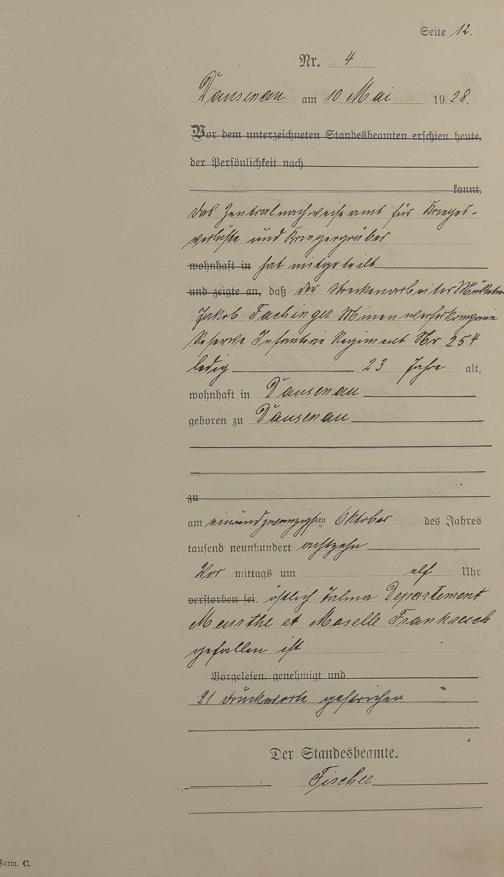 Seite 12.
Nr. 4
Dausenau am 10 Mai 1928.
Vor dem unterzeichneten Standesbeamten erschien heute,
der Persönlichkeit nach
kannt,
das Zentralnachweiseamt für Krieger-
verluste und Kriegergräber
wohnhaft in hat mitgeteilt
und zeigte an, daß der Streckenarbeiter Musketier
Jakob Fachinger Minenwerferkompanie
Reserve Infanterie Regiment Nr 254
ledig 23 Jahre alt,
wohnhaft in Dausenau
geboren zu Dausenau
zu
am einundzwanzigsten Oktober des Jahres
tausend neunhundert achtzehn
Vor mittags um elf Uhr
verstorben sei. östlich Departement
Meurthe et Moselle Frankreich
gefallen ist
Vorgelesen, genehmigt und
21 Druckworte gestrichen
Der Standesbeamte.
Fischer
Form. C.